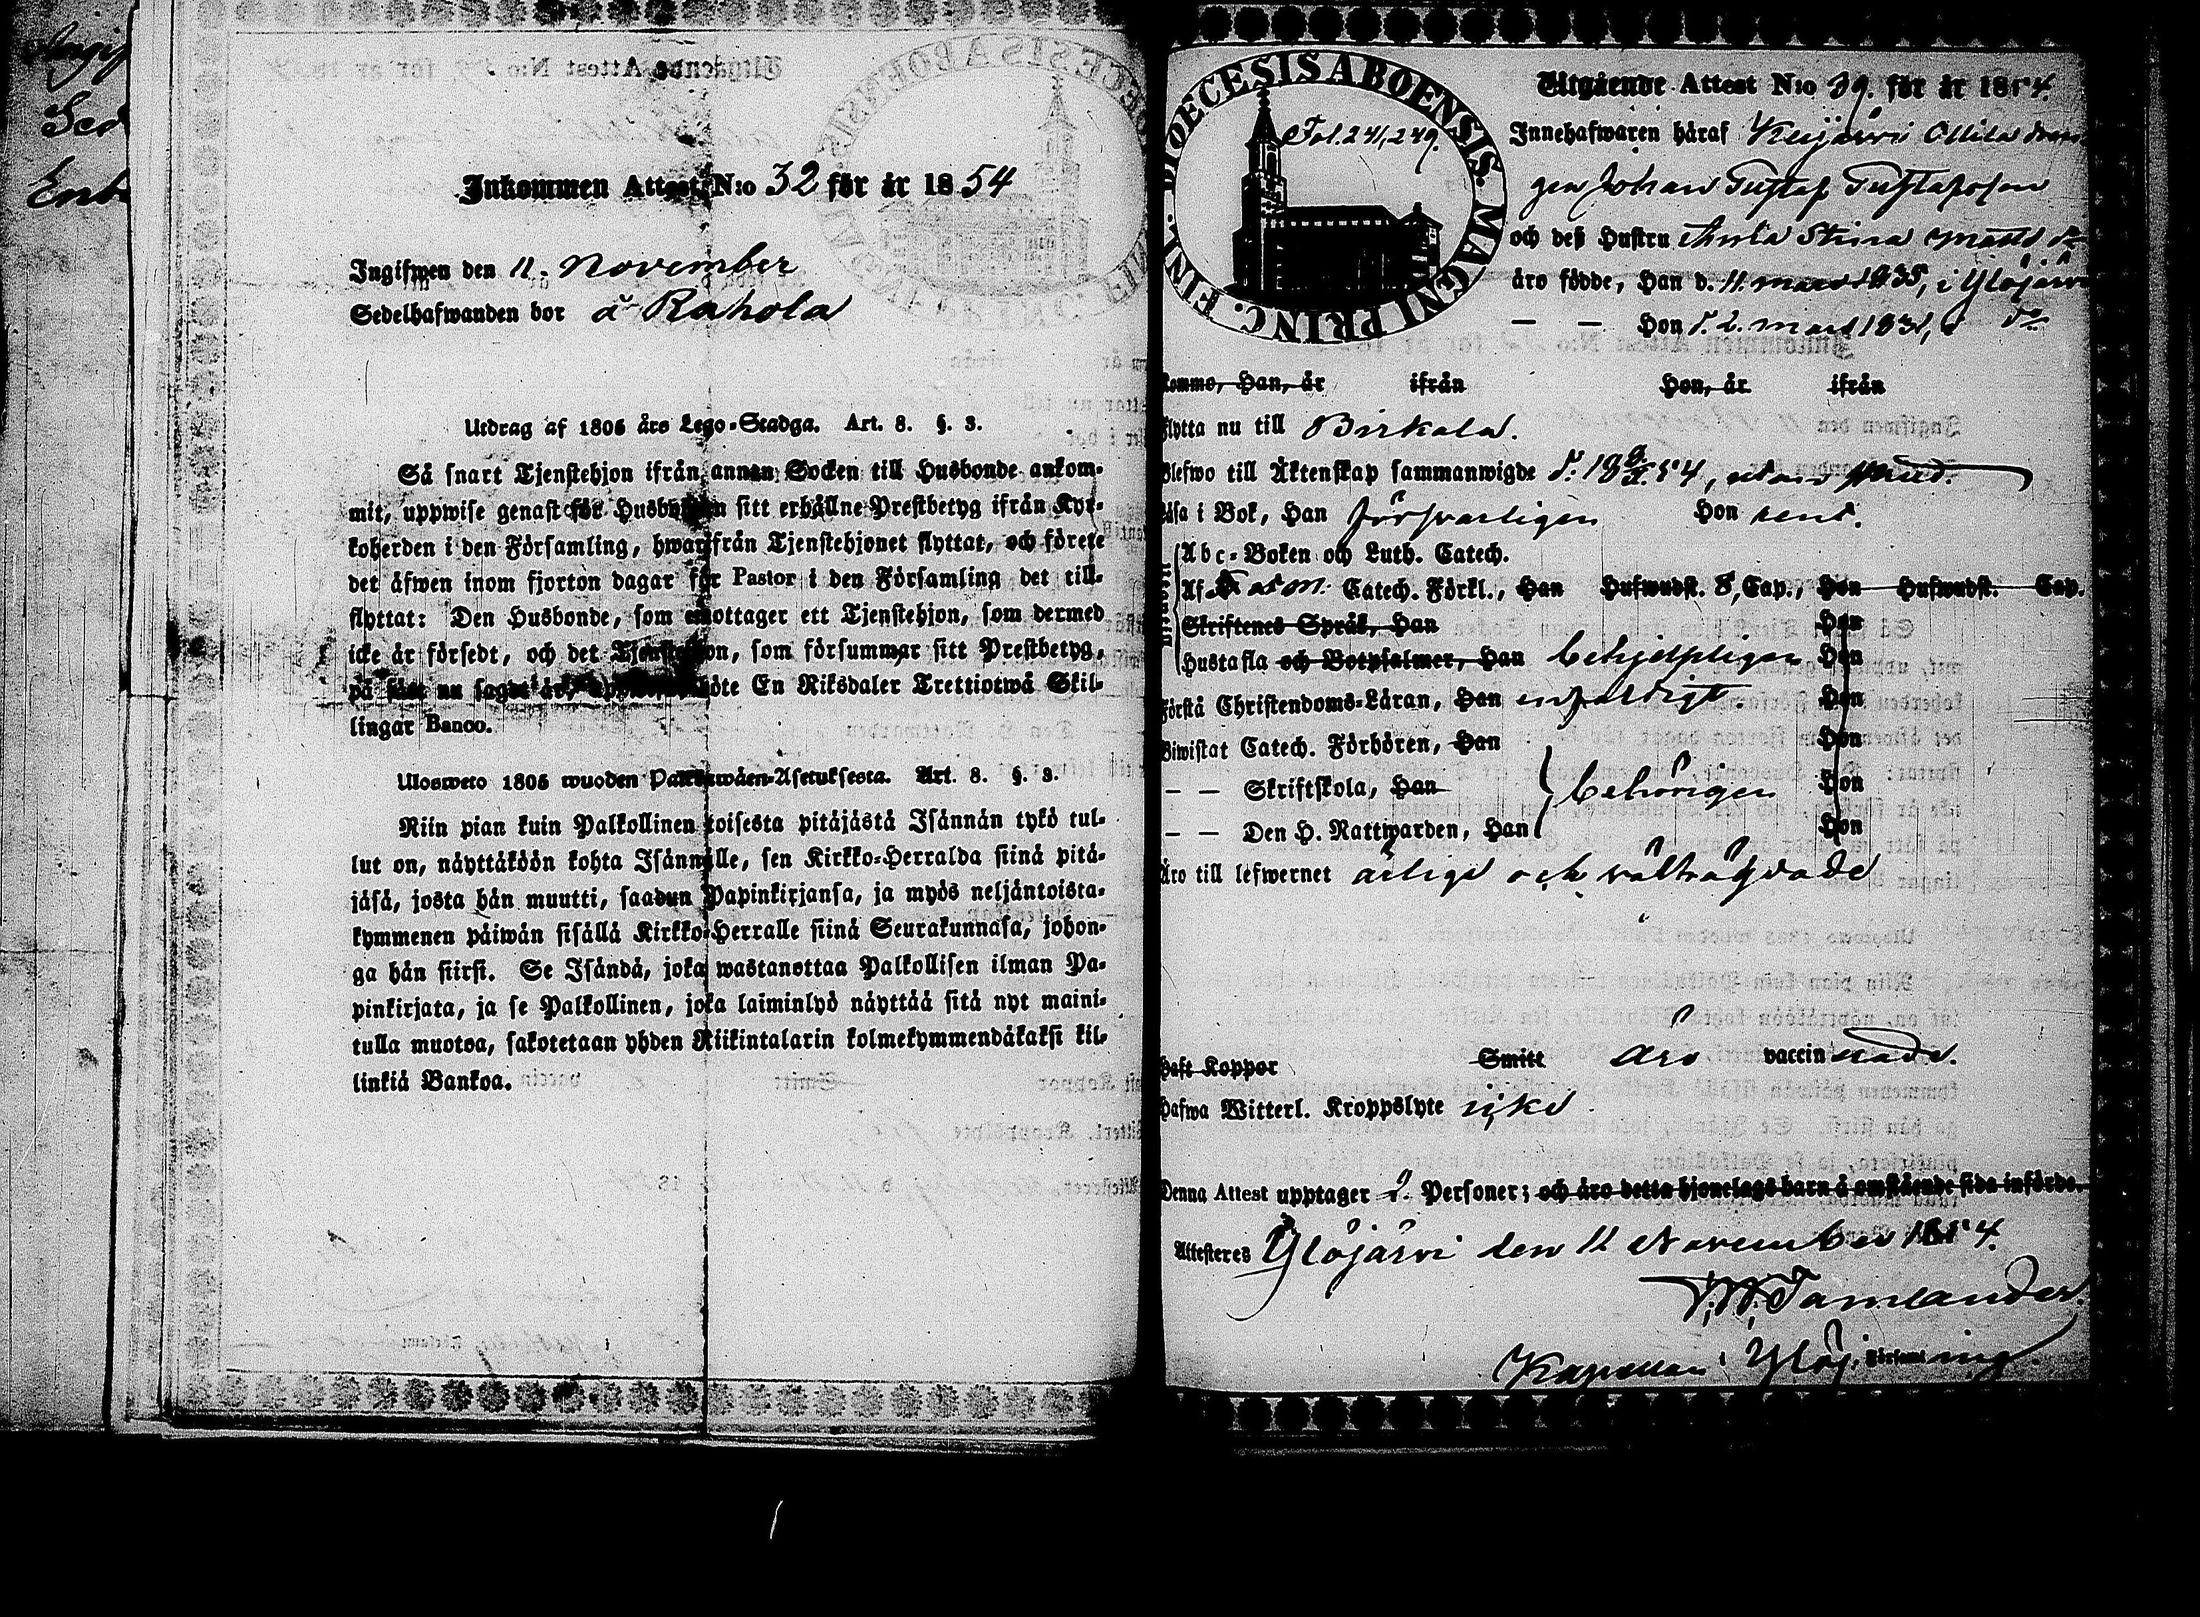 Inkommen Attest N:o 32 för år 1854
Ingifwen den 11. November
Sedelhafwanden bor å Rahola
Utdrag af 1805 års Lego-Stadga. Art. 8. §. 3.
Så snart Tjenstehjon ifrån annan Socken till Husbonde ankom-
mit, uppwise genast för Husbonden sitt erhållne Prestbetyg ifrån Kyr-
koherden i den Församling, hwarifrån Tjenstehjonet flyttat, och förete
det äfwen inom fjorton dagar för Pastor i den Församling det till-
flyttat: Den Husbonde, som emottager ett Tjenstehjon, som dermed
icke är försedt, och det Tjenstehjon, som försummar sitt Prestbetyg,
på sätt nu sagdt är, böte En Riksdaler Trettiotwå Skil-
lingar Banco.
Ulosweto 1805 wuoden Palkkawäen-Asetuksesta. Art. 8. §. 3.
Niin pian kuin Palkollinen toisesta pitäjästä Isännän tykö tul-
lut on, näyttäköön kohta Isännälle, sen Kirkko-Herralda siinä pitä-
jäsä, josta hän muutti, saadun Papinkirjansa, ja myös neljäntoista-
kymmenen päiwän sisällä Kirkko-Herralle siinä Seurakunnasa, johon-
ga hän siirsi. Se Isändä, joka wastanottaa Palkollisen ilman Pa-
pinkirjata, ja se Palkollinen, joka laiminlyö näyttää sitä nyt maini-
tulla muotoa, sakotetaan yhden Riikintalarin kolmekymmendäkaksi kil-
linkiä Bankoa.
DIOECESIS ABOENSIS. MAGNI PRINC. FINL.
Fol. 241, 249.
Utgående Attest N:o 39. för år 1854.
Innehafwaren häraf Keijärvi Ollila dren-
gen Johan Gustaf Gustafsson
och deß Hustru Anna Stina Matts dr
äro födde, Han d. 11. mars 1835, i Ylöjärvi
— — Hon d. 2. mars 183 , i do
komne, Han, år ifrån Hon, år ifrån
flytta nu till Birkala.
Blefwo till Äktenskap sammanwigde d. 18 54, utan
Läsa i Bok, Han försvarligen Hon rent.
Abc-Boken och Luth. Catech.
Af Catech. Förkl., Han Hufwudst. 8, Cap., Hon Hufwudst. Cap.
Skriftenes Språk, Han Hon
Hustafla och Botpsalmer, Han behjelpligen Hon
Förstå Christendoms-Läran, Han enfaldigt Hon
Biwistat Catech. Förhören, Han Hon
— — Skriftskola, Han behörigen Hon
— — Den H. Nattwarden, Han Hon
Äro till lefwernet ärlige och välfrägdade
Haft Koppor Smitt äro vaccinerade.
Hafwa Witterl. Kroppslyte icke
Denna Attest upptager 2. Personer; och äro detta hjonelags barn å omstående sida införde.
Attesteres Ylöjärvi den 11 November 1854.
Tamlander.
Kapellan i Ylöj. Församling.